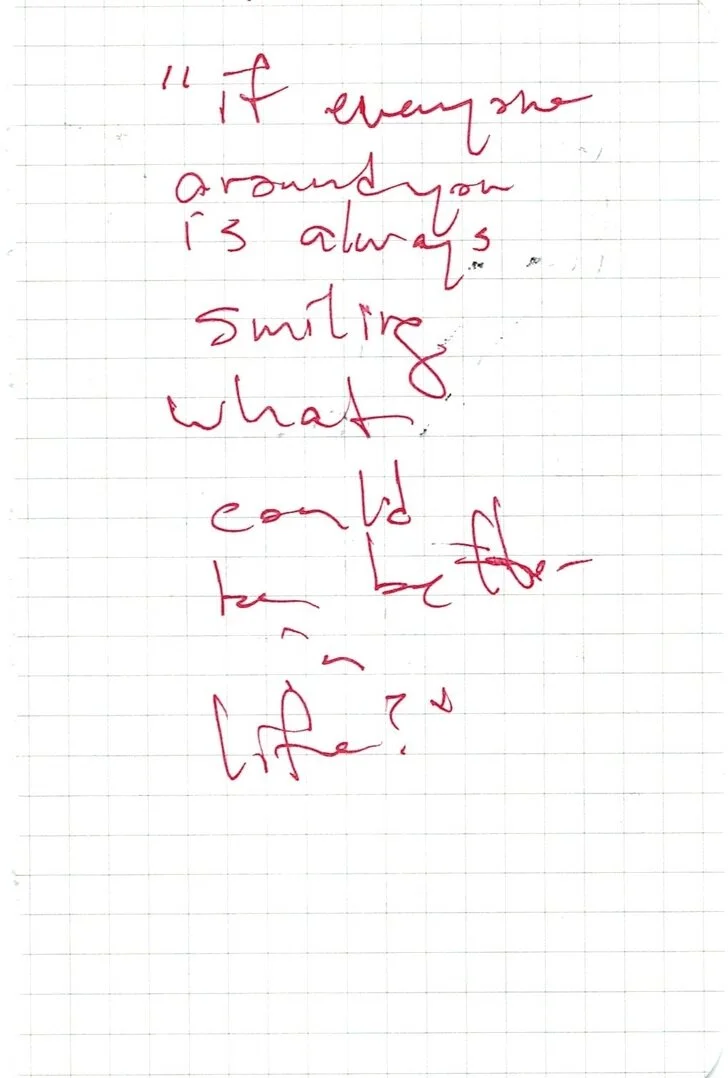 "if everyone
around you
is always
smiling
what
could
be better
in
life?"